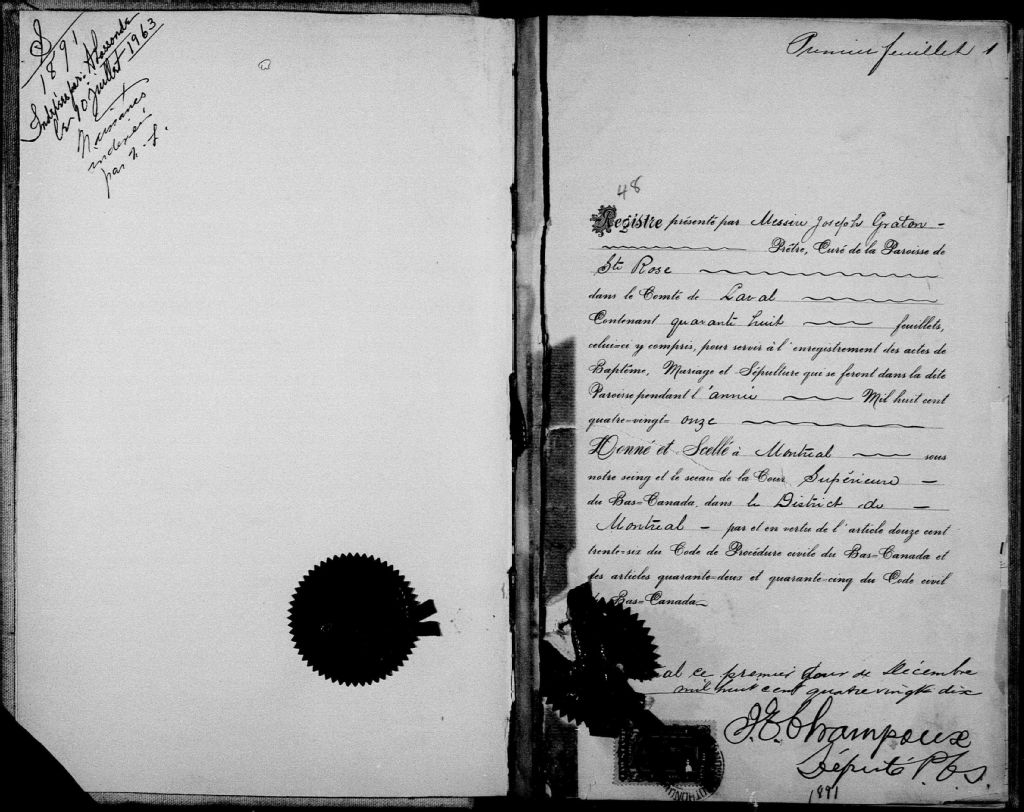 1891
Indexé par: A Lasonde
le 10 juillet 1963
Naissances
indexé
par
Premier feuillet 1
48
Registre présenté par Messire Joseph Graton -
Prêtre, Curé de la Paroisse de
Ste Rose
dans le Comté de Laval
Contenant quarante huit feuillets,
celui-ci y compris, pour servir à l'enregistrement des actes de
Baptême, Mariage et Sépulture qui se feront dans la dite
Paroisse pendant l'année Mil huit cent
quatre=vingt= onze
Donné et Scellé à Montréal sous
notre seing et le sceau de la Cour Supérieure -
du Bas=Canada, dans le District de -
Montréal - par et en vertu de l'article douze cent
trente=six du Code de Procédure civile du Bas=Canada et
des articles quarante=deux et quarante=cinq du Code civil
Bas=Canada
al ce premier jour de Décembre
mil huit cent quatre vingt dix
J. E. Champoux
Député P. C. S.
1891